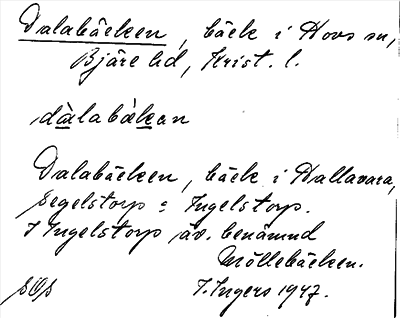 Dalabäcken, bäck i Hovs sn,
Bjäre hd, Krist. l.
dàlabäkan
Dalabäcken, bäck i Hallavara,
Segelstorp o Ingelstorp.
I Ingelstorp äv. benämnd
Möllebäcken.
I. Ingers 1947.